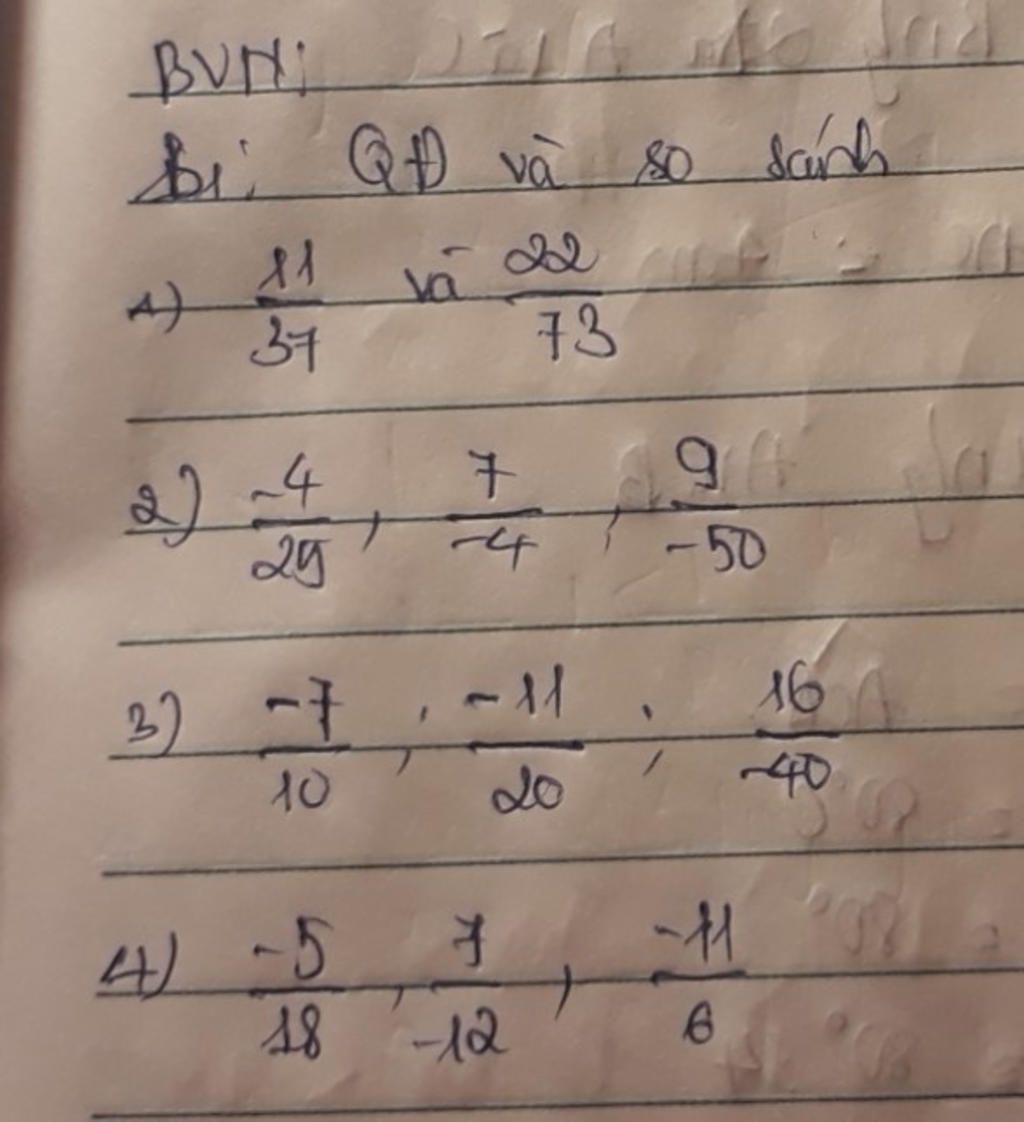 BVN:
B1: QĐ và so sánh
1) 11/37 và 22/73
2) -4/25, 7/-4, 9/-50
3) -7/10; -11/20; 16/-40
4) -5/18, 7/-12, -11/6